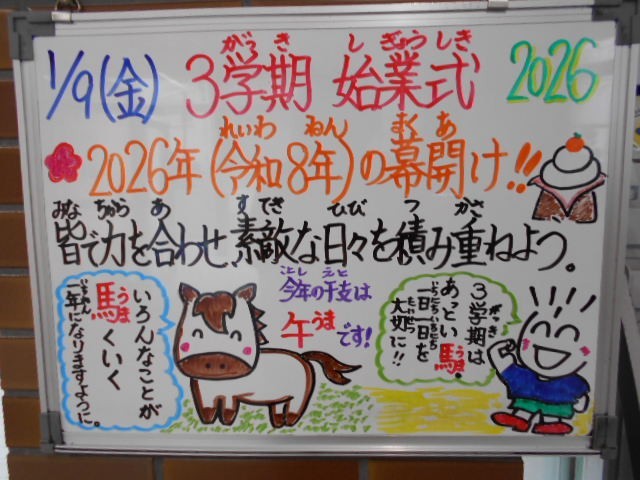 1/9(金) 3学期 始業式 2026
がっき しぎょうしき
2026年(令和8年)の幕開け!!
れいわ ねん まくあ
皆で力を合わせ、素敵な日々を積み重ねよう。
みな ちから あ すてき ひび つ かさ
今年の干支は
ことし えと
午です!
うま
3学期は
がっき
あっという
一日一日を
大切に!!
いろんなことが
馬くいく
うま
一年になりますように。